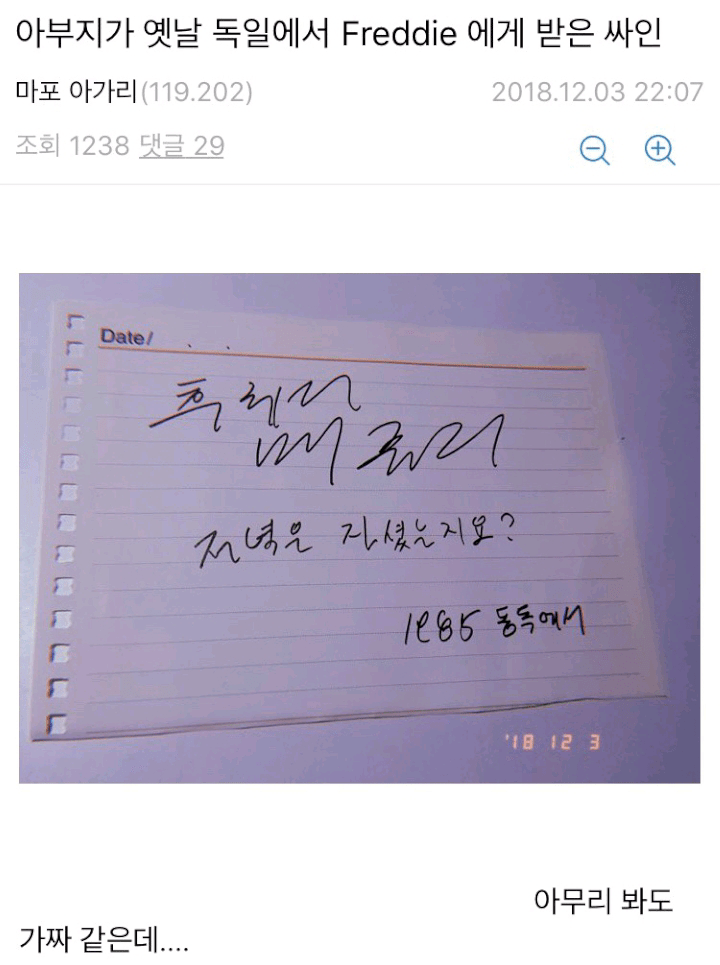 아부지가 옛날 독일에서 Freddie 에게 받은 싸인
마포 아가리(119.202)
2018.12.03 22:07
조회 1238 댓글 29
Date/ . .
흐레디
매큐리
저녁은 자셨는지요?
1985 동독에서
'18 12 3
아무리 봐도
가짜 같은데....